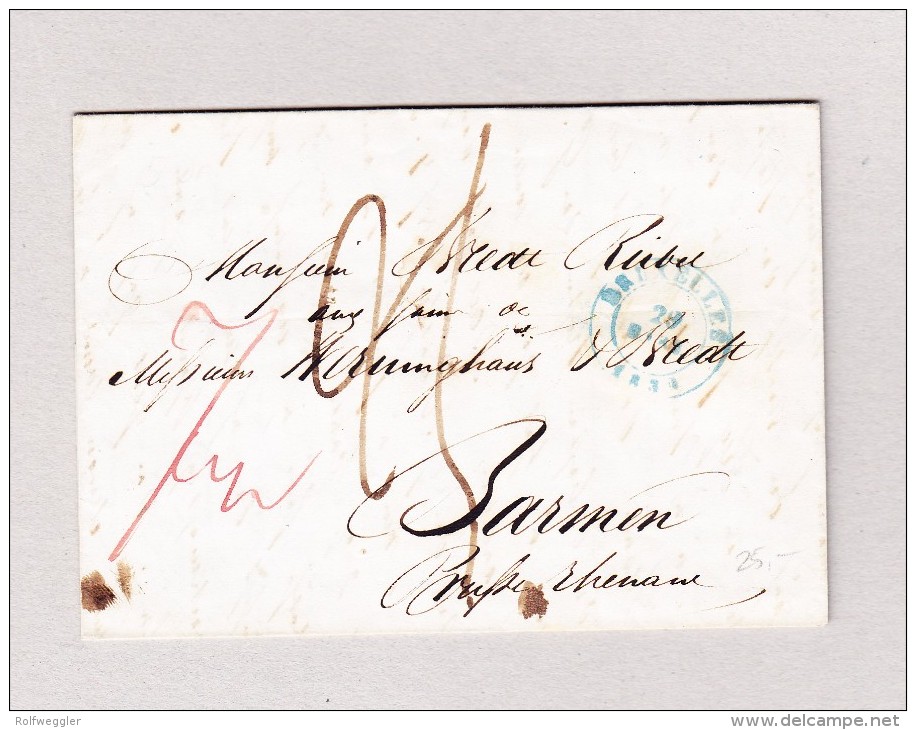 Monsieur Bredt Rübel
aux soins de
Messieurs Werninghaus & Bredt
Barmen
Prusse Rhenane
BRUXELLES
29
1834
25,-
Rolfweggler
www.delcampe.net